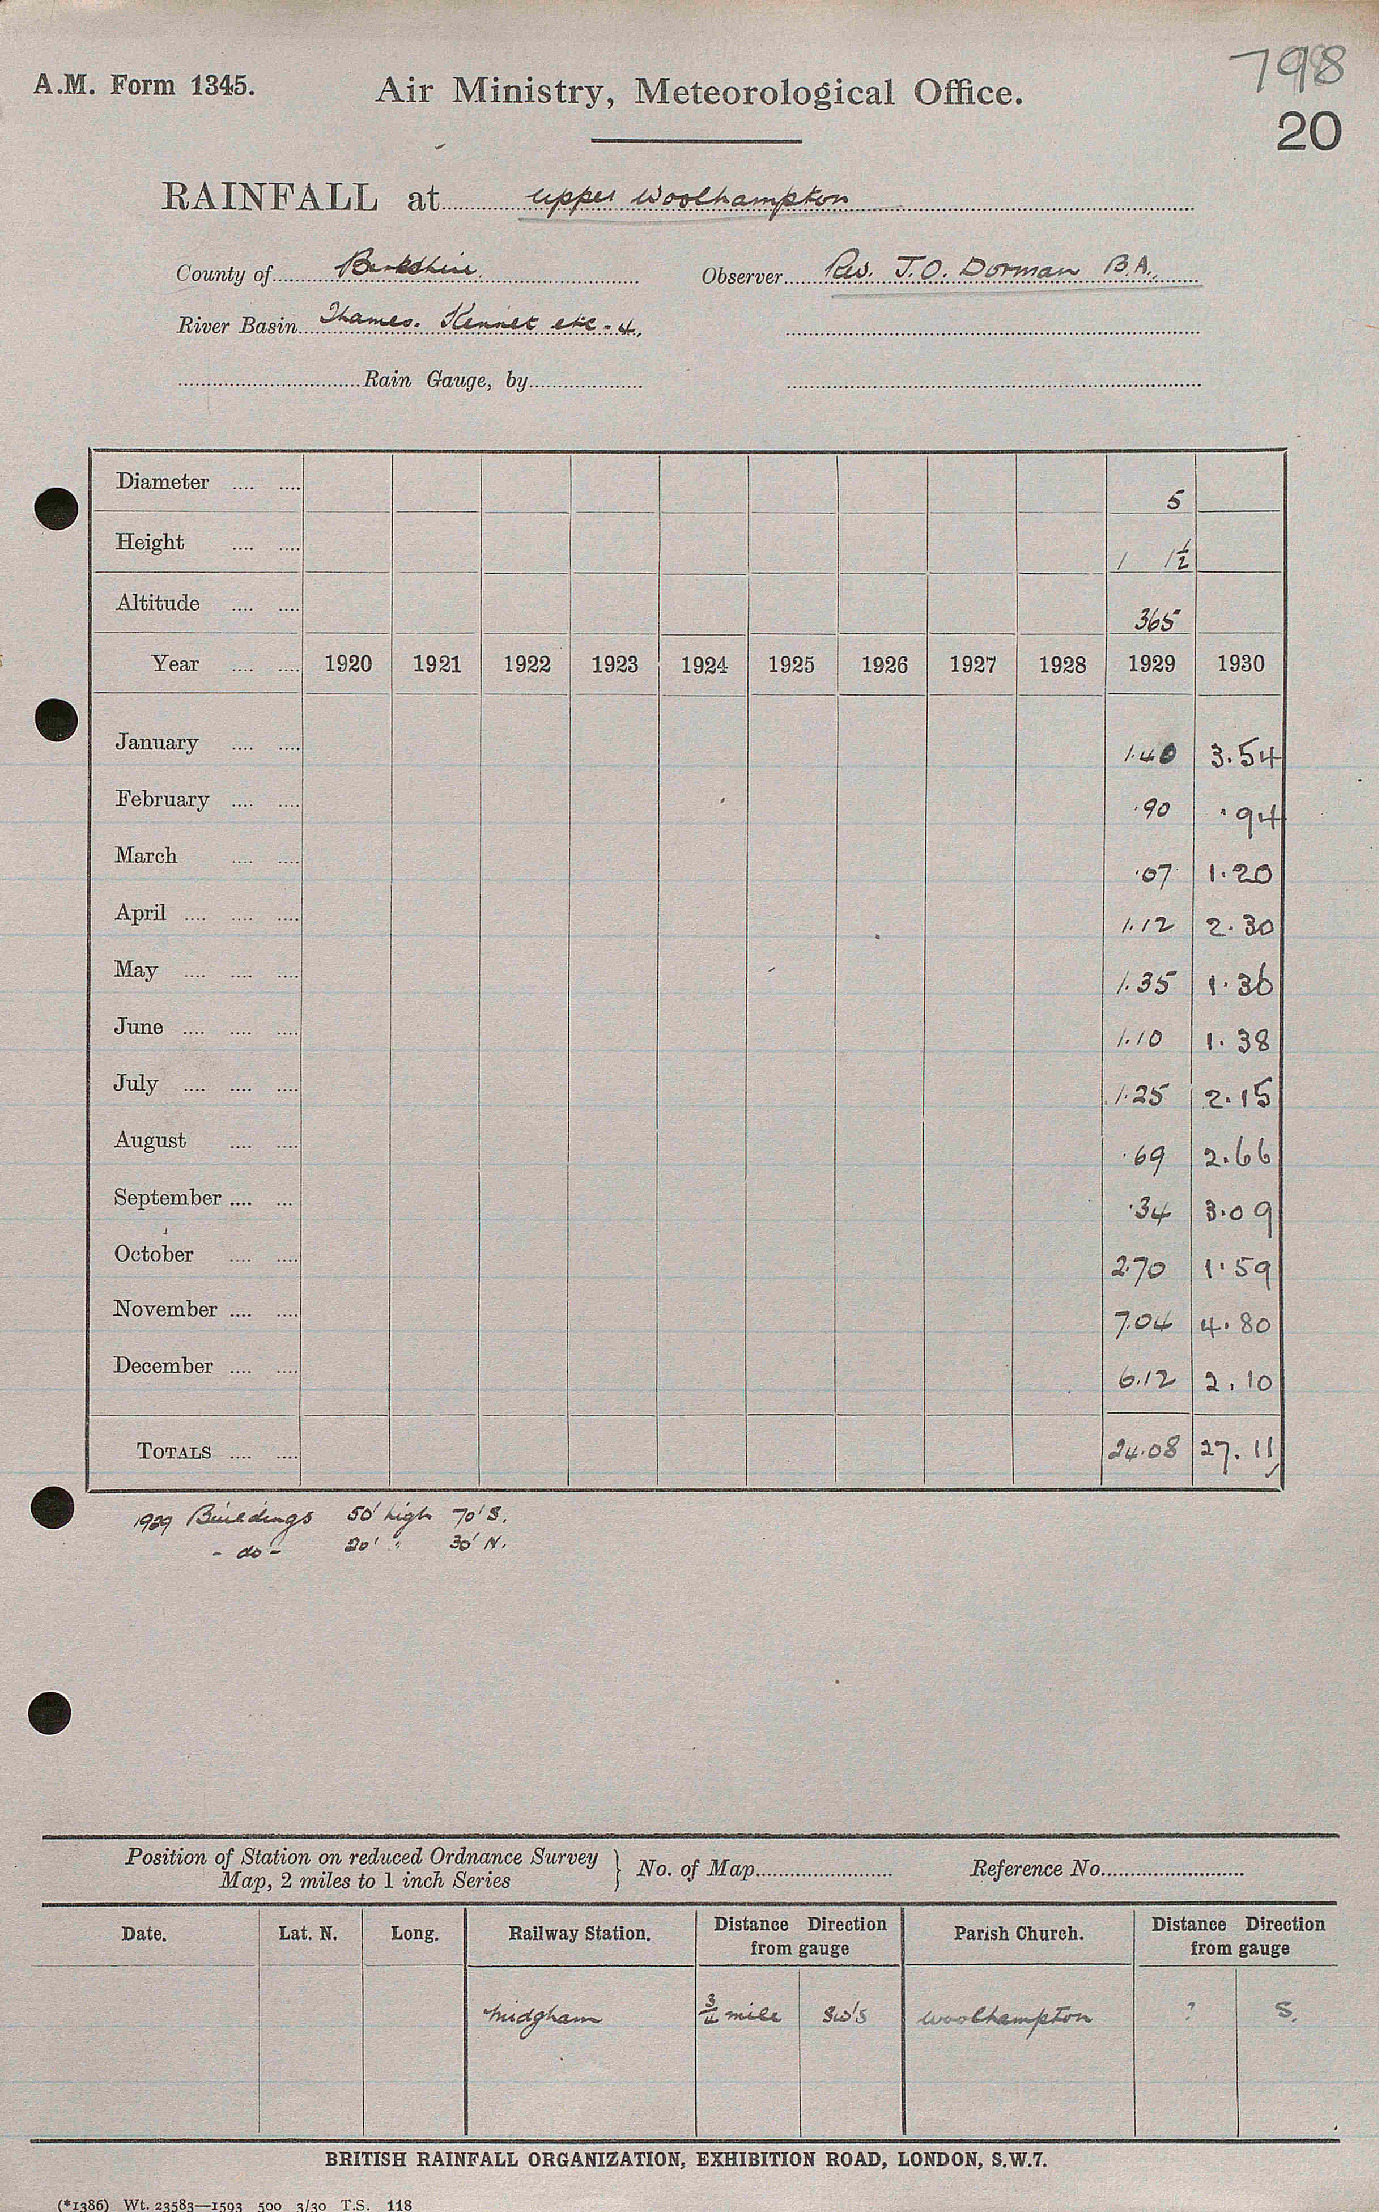 798
A.M. Form 1345. Air Ministry, Meteorological Office.
20
RAINFALL at Upper Woolhampton
County of Berkshire. Observer Rev. J.O. Dorman B.A.,
River Basin Thames. Kennet etc. 4,
Rain Gauge, by
Diameter .... .... 5
Height .... .... 1 1½
Altitude .... .... 365
Year .... .... 1920 1921 1922 1923 1924 1925 1926 1927 1928 1929 1930
January .... .... 1.40 3.54
February .... .... .90 .94
March .... .... .07 1.20
April .... .... .... 1.12 2.30
May .... .... .... 1.35 1.36
June .... .... .... 1.10 1.38
July .... .... .... 1.25 2.15
August .... .... .69 2.66
September .... ... .34 3.09
October .... .... 2.70 1.59
November .... .... 7.04 4.80
December .... .... 6.12 2.10
TOTALS .... .... 24.08 27.11
1929 Buildings 50' high 70' S.
- do - 20' " 30' N.
Position of Station on reduced Ordnance Survey
Map, 2 miles to 1 inch Series } No. of Map Reference No.
Date. Lat. N. Long. Railway Station. Distance Direction from gauge Parish Church. Distance Direction from gauge
Midgham ¾ mile SW'S Woolhampton ? S.
BRITISH RAINFALL ORGANIZATION, EXHIBITION ROAD, LONDON, S.W.7.
(*1386) Wt. 23583—1593 500 3/30 T.S. 118